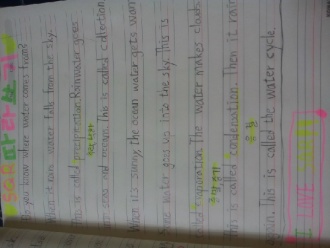 Do you know where water comes from?
When it rains water falls from the sky.
This is called precipitation. Rainwater goes
seas and ocean. This is called collection
When it's sunny, the ocean water gets warm
water goes up into the sky. This is
called evaporation. The water makes clouds
This is called condensation. Then it rain
again. This is called the water cycle.
I LOVE